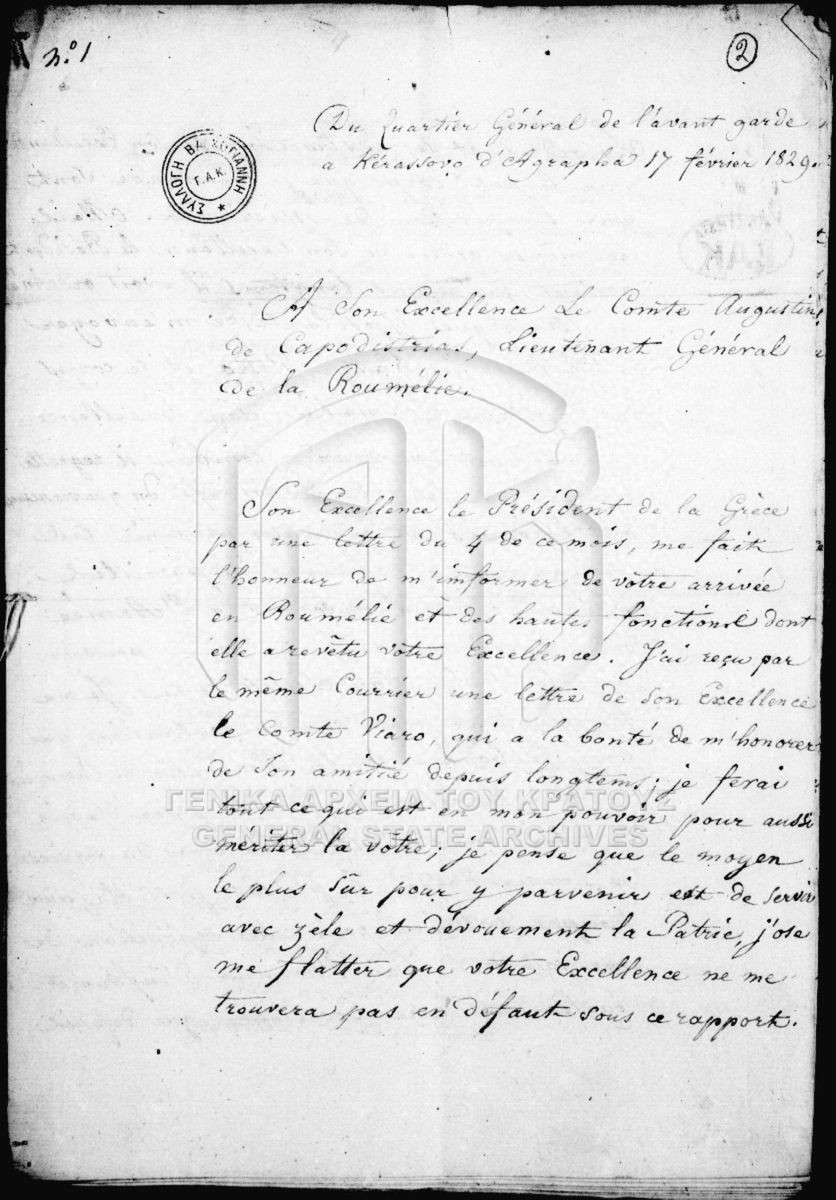 N.º 1
2
Du Quartier Général de l'avant garde
a Kérassovo d'Agrapha 17 février 1829.
ΣΥΛΛΟΓΗ ΒΛΑΧΟΓΙΑΝΝΗ
Γ.Α.Κ.
A Son Excellence Le Comte Augustin
de Capodistrias, Lieutenant Général
de la Roumélie.
Son Excellence le Président de la Grèce
par une lettre du 4 de ce mois, me fait
l'honneur de m'informer de votre arrivée
en Roumélie et des hautes fonctions dont
elle a revêtu votre Excellence. J'ai reçu par
le même Courrier une lettre de Son Excellence
le Comte Viaro, qui a la bonté de m'honorer
de Son amitié depuis longtems; je ferai
tout ce qui est en mon pouvoir pour aussi
meriter la votre; je pense que le moyen
le plus sûr pour y parvenir est de servir
avec zèle et dévouement la Patrie, j'ose
me flatter que votre Excellence ne me
trouvera pas en défaut sous ce rapport.
ΓΕΝΙΚΑ ΑΡΧΕΙΑ ΤΟΥ ΚΡΑΤΟΥΣ
GENERAL STATE ARCHIVES